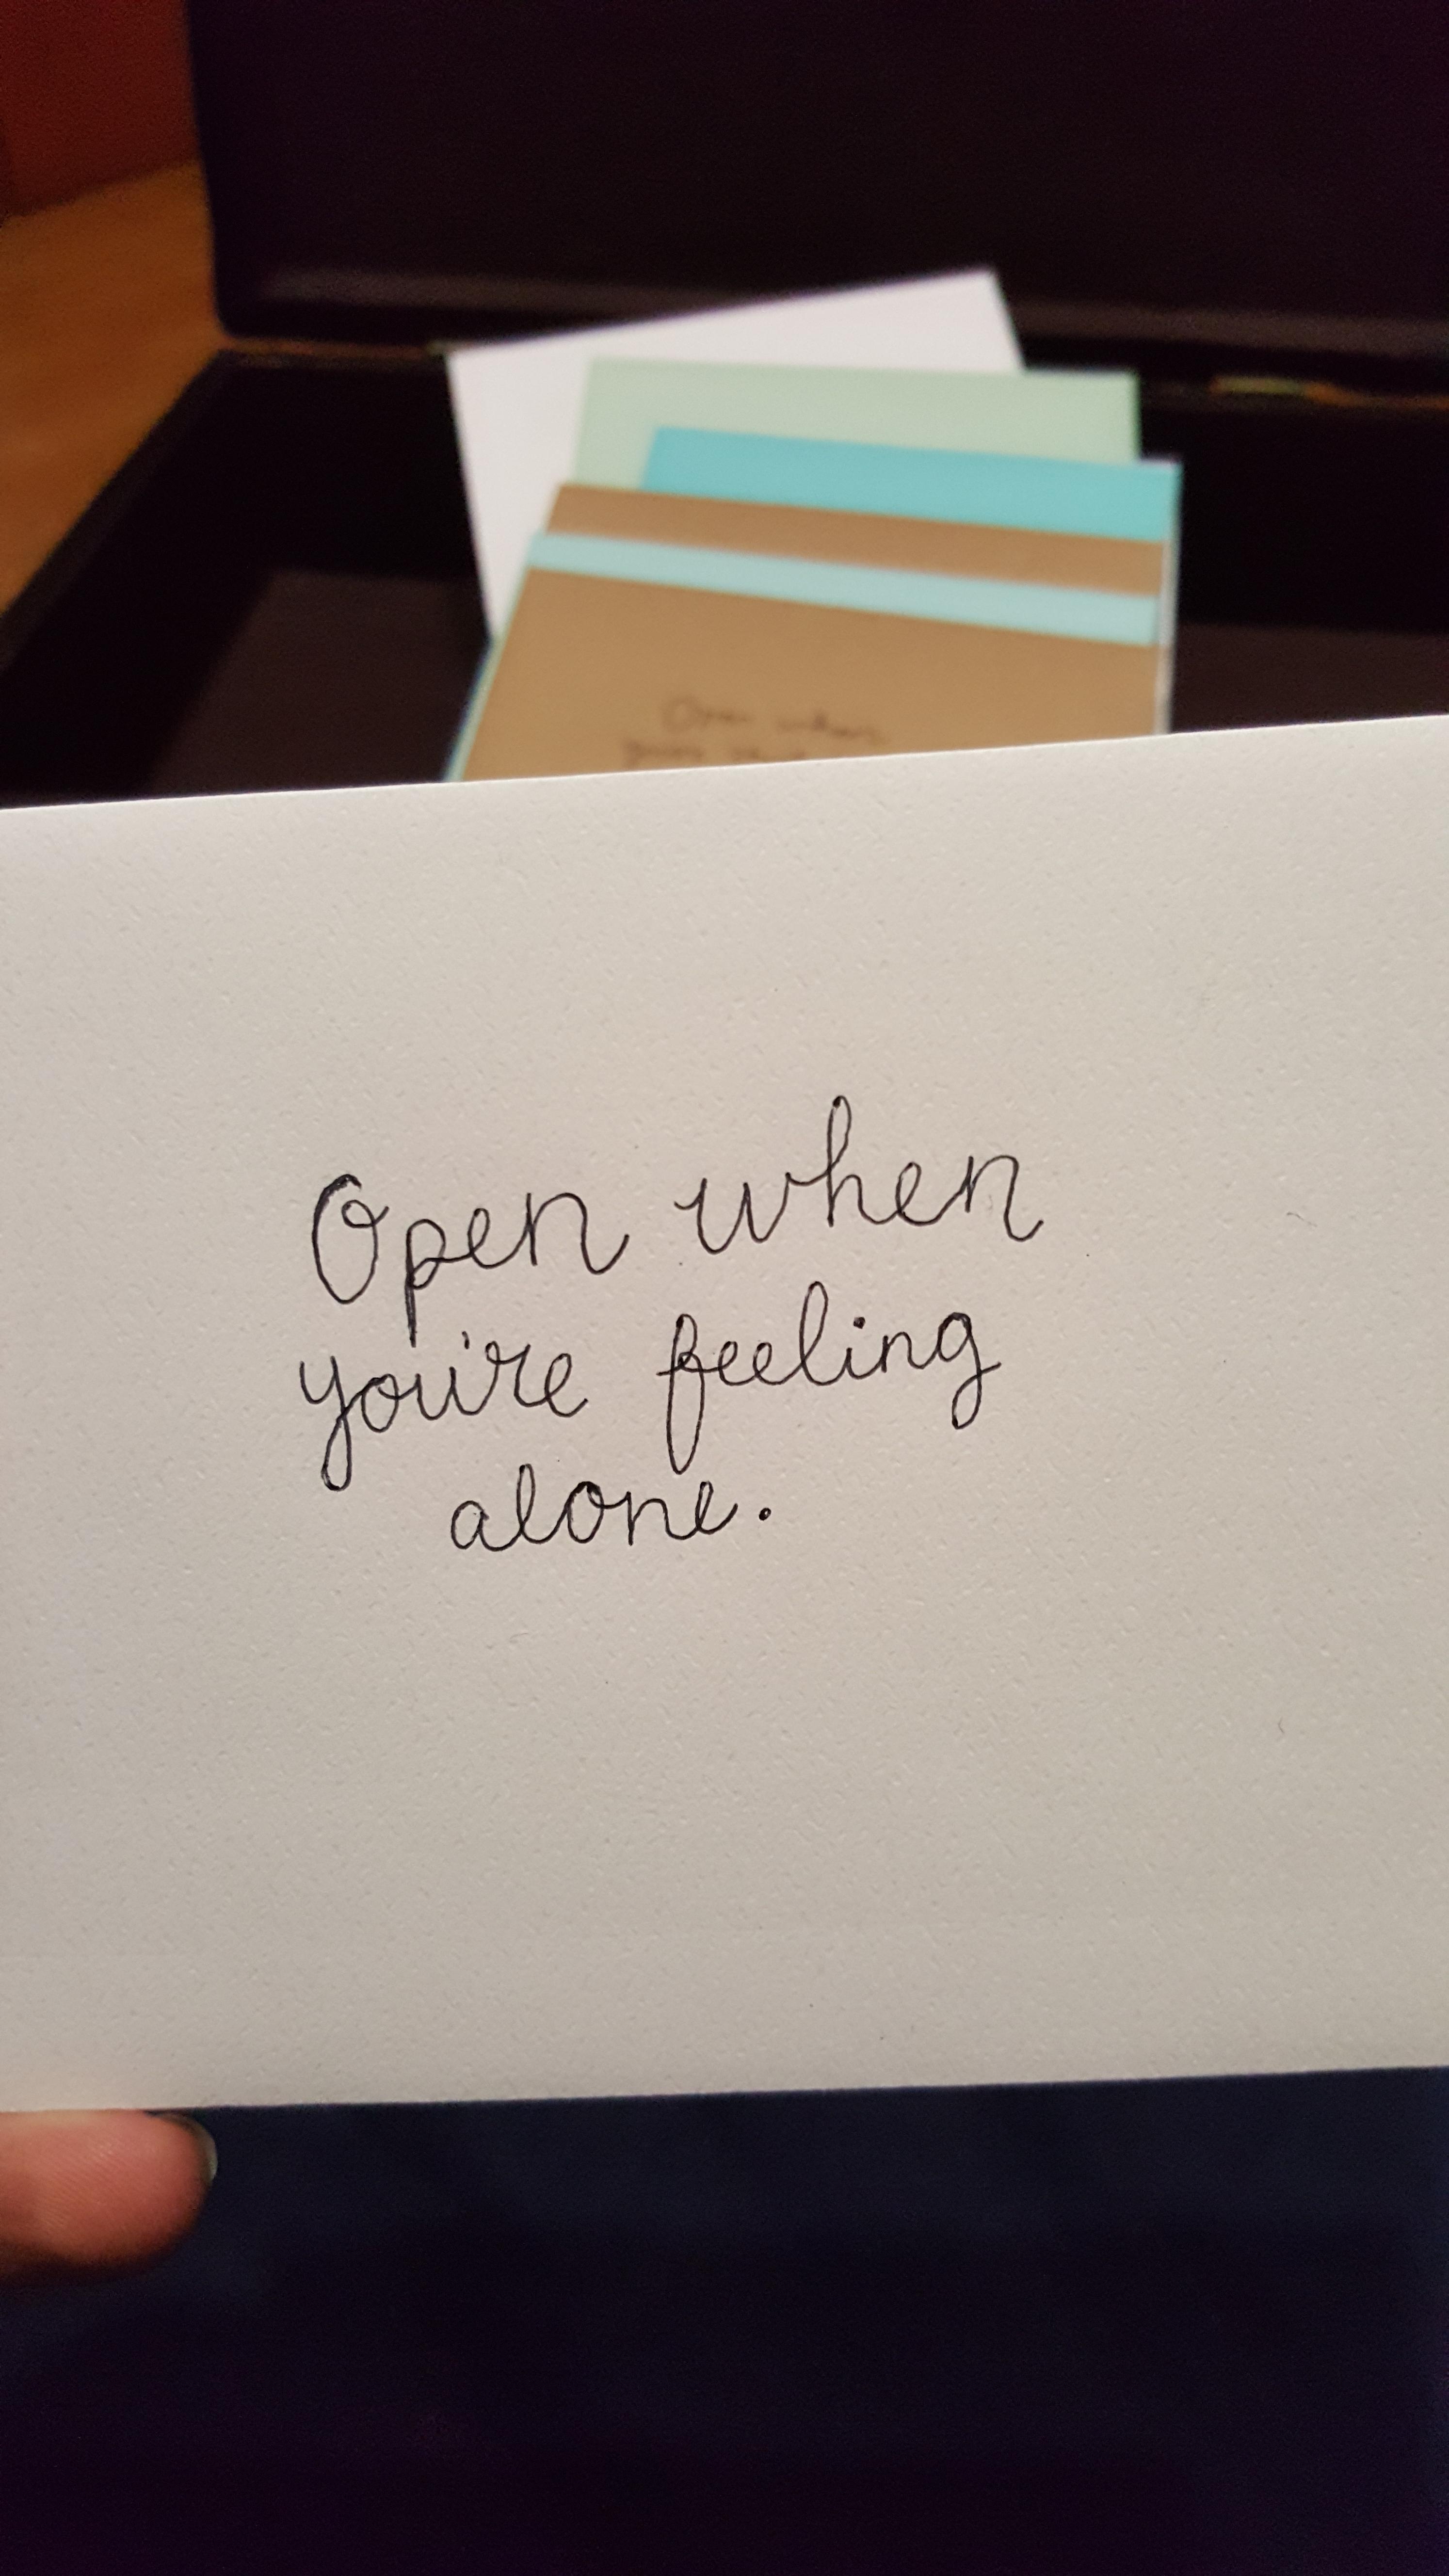 Open when
Open when
you're feeling
alone.